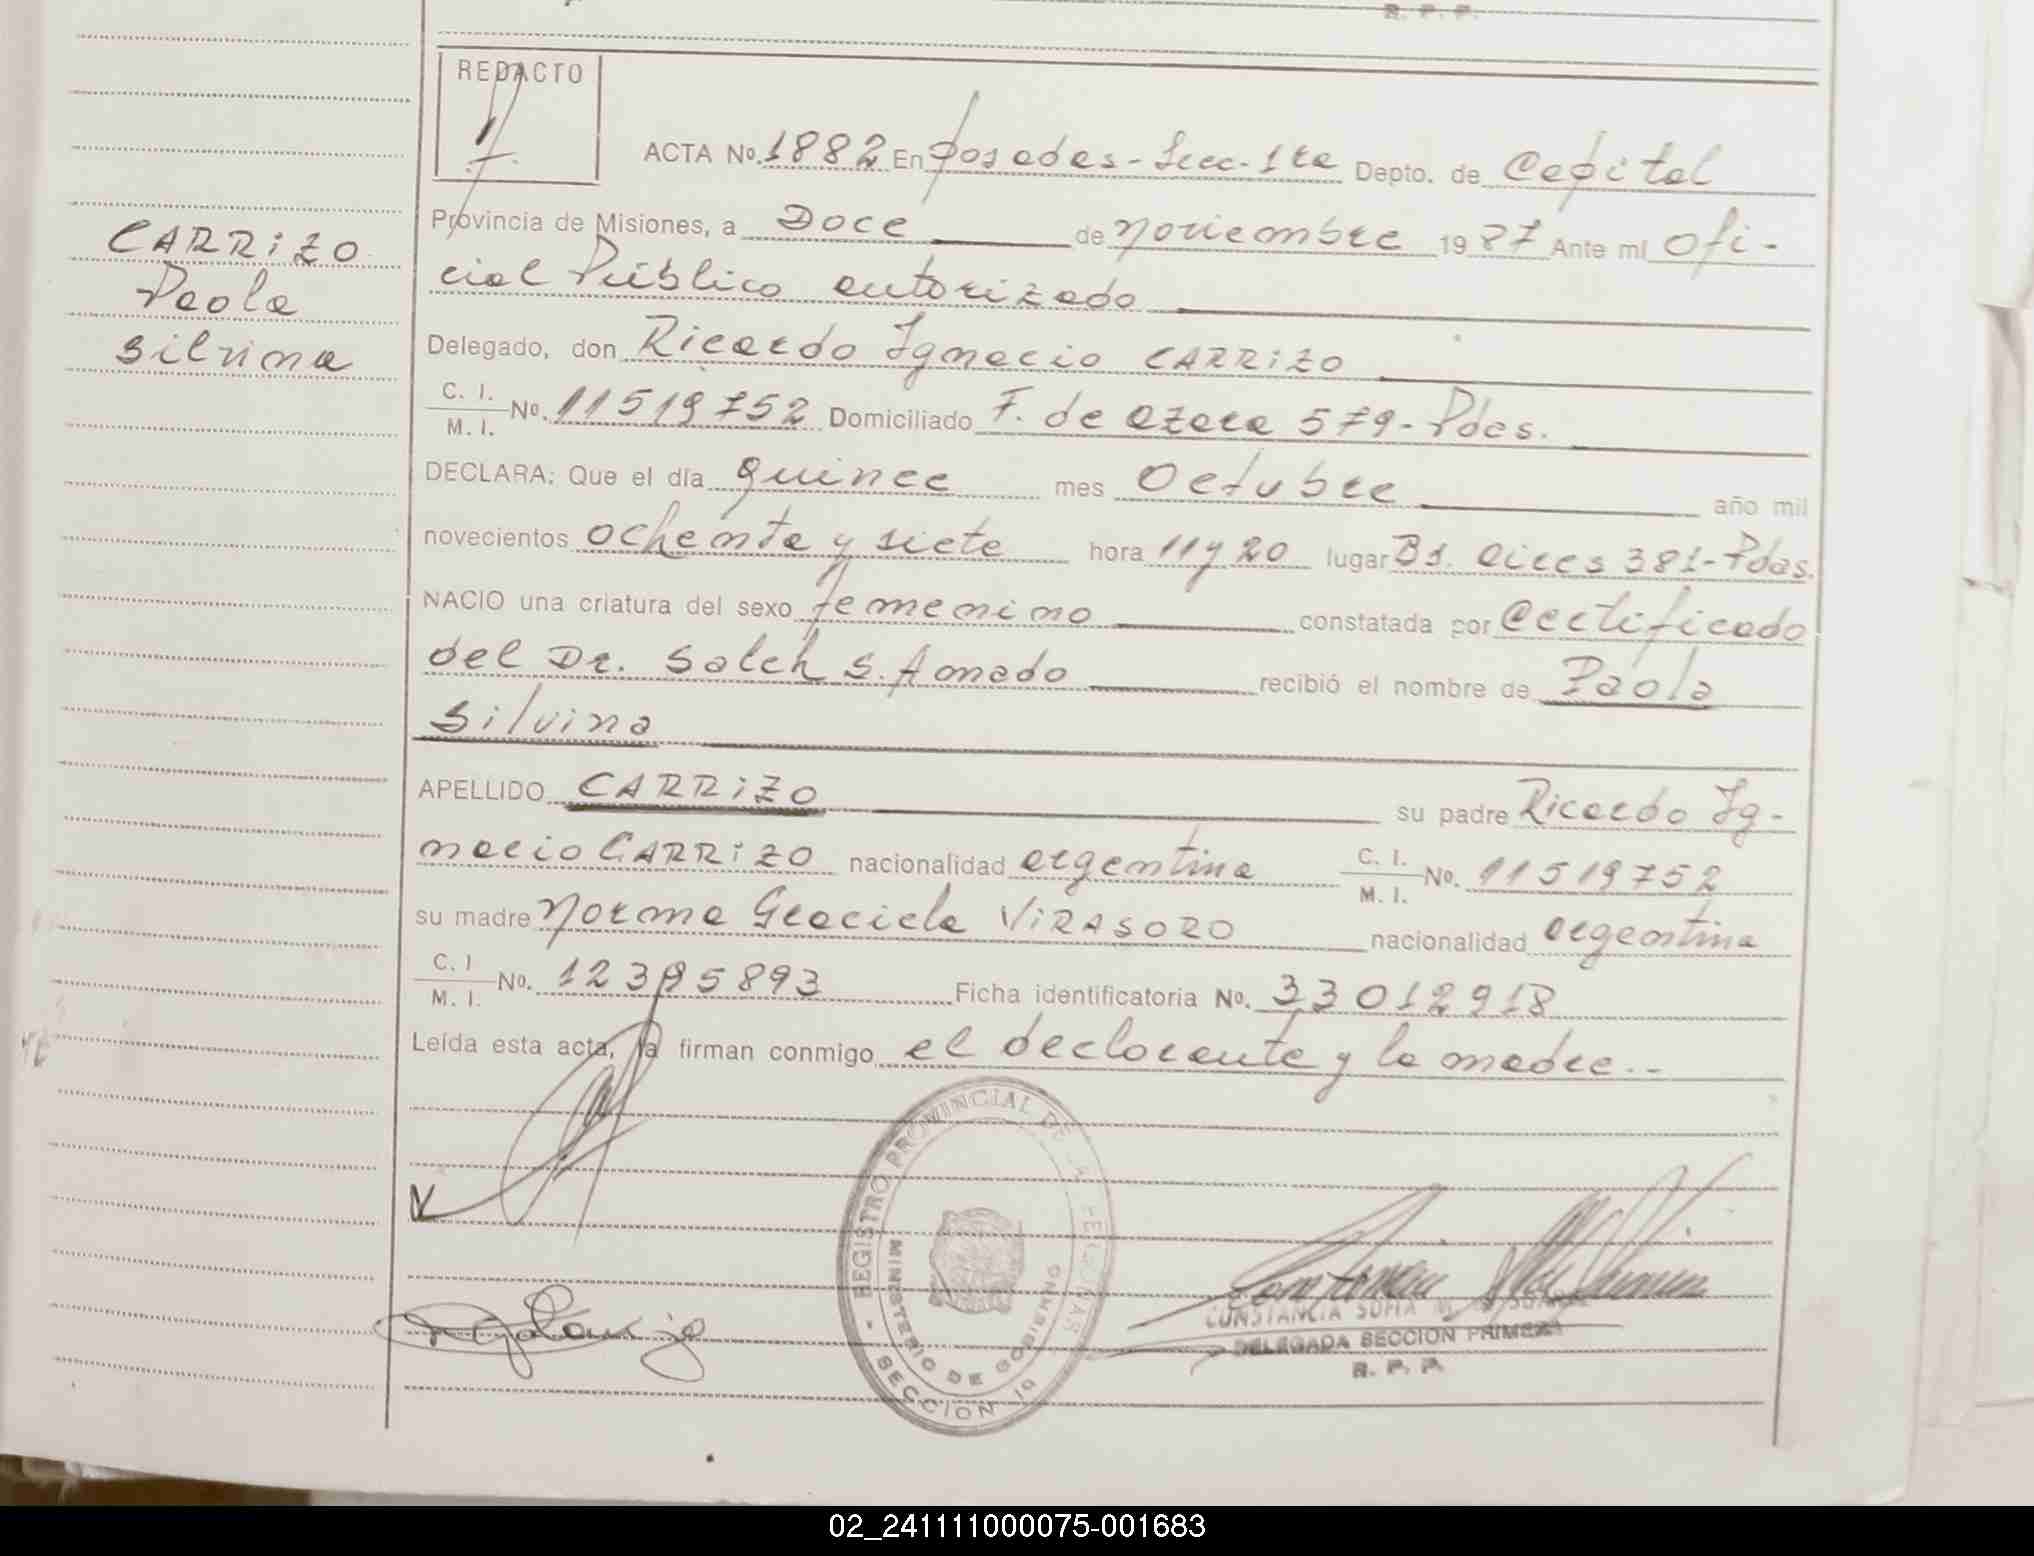 R. P. P.
REDACTO
ACTA Nº. 1882 En Posadas - Secc - 1ra Depto. de Capital
CARRIZO
Paola
Silvina
Provincia de Misiones, a Doce de noviembre 1987 Ante mí Ofi-
cial Público autorizado
Delegado, don Ricardo Ignacio CARRIZO
C. I.
M. I. Nº. 11519752 Domiciliado F. de Azara 579 - Pdas.
DECLARA: Que el día quince mes Octubre año mil
novecientos ochenta y siete hora 11 y 20 lugar Bs. Aires 381 - Pdas.
NACIO una criatura del sexo femenino constatada por Certificado
del Dr. Saleh S. Amado recibió el nombre de Paola
Silvina
APELLIDO CARRIZO su padre Ricardo Ig-
nacio CARRIZO nacionalidad argentina C. I.
M. I. Nº. 11519752
su madre Norma Graciela VIRASORO nacionalidad argentina
C. I
M. I. Nº. 12395893 Ficha identificatoria Nº. 33012918
Leída esta acta, la firman conmigo el declarante y la madre..-
REGISTRO PROVINCIAL DE LAS PERSONAS
MINISTERIO DE GOBIERNO
SECCION 1ª
CONSTANCIA SOFIA M.
DELEGADA SECCION PRIMERA
R. P. P.
02_241111000075-001683